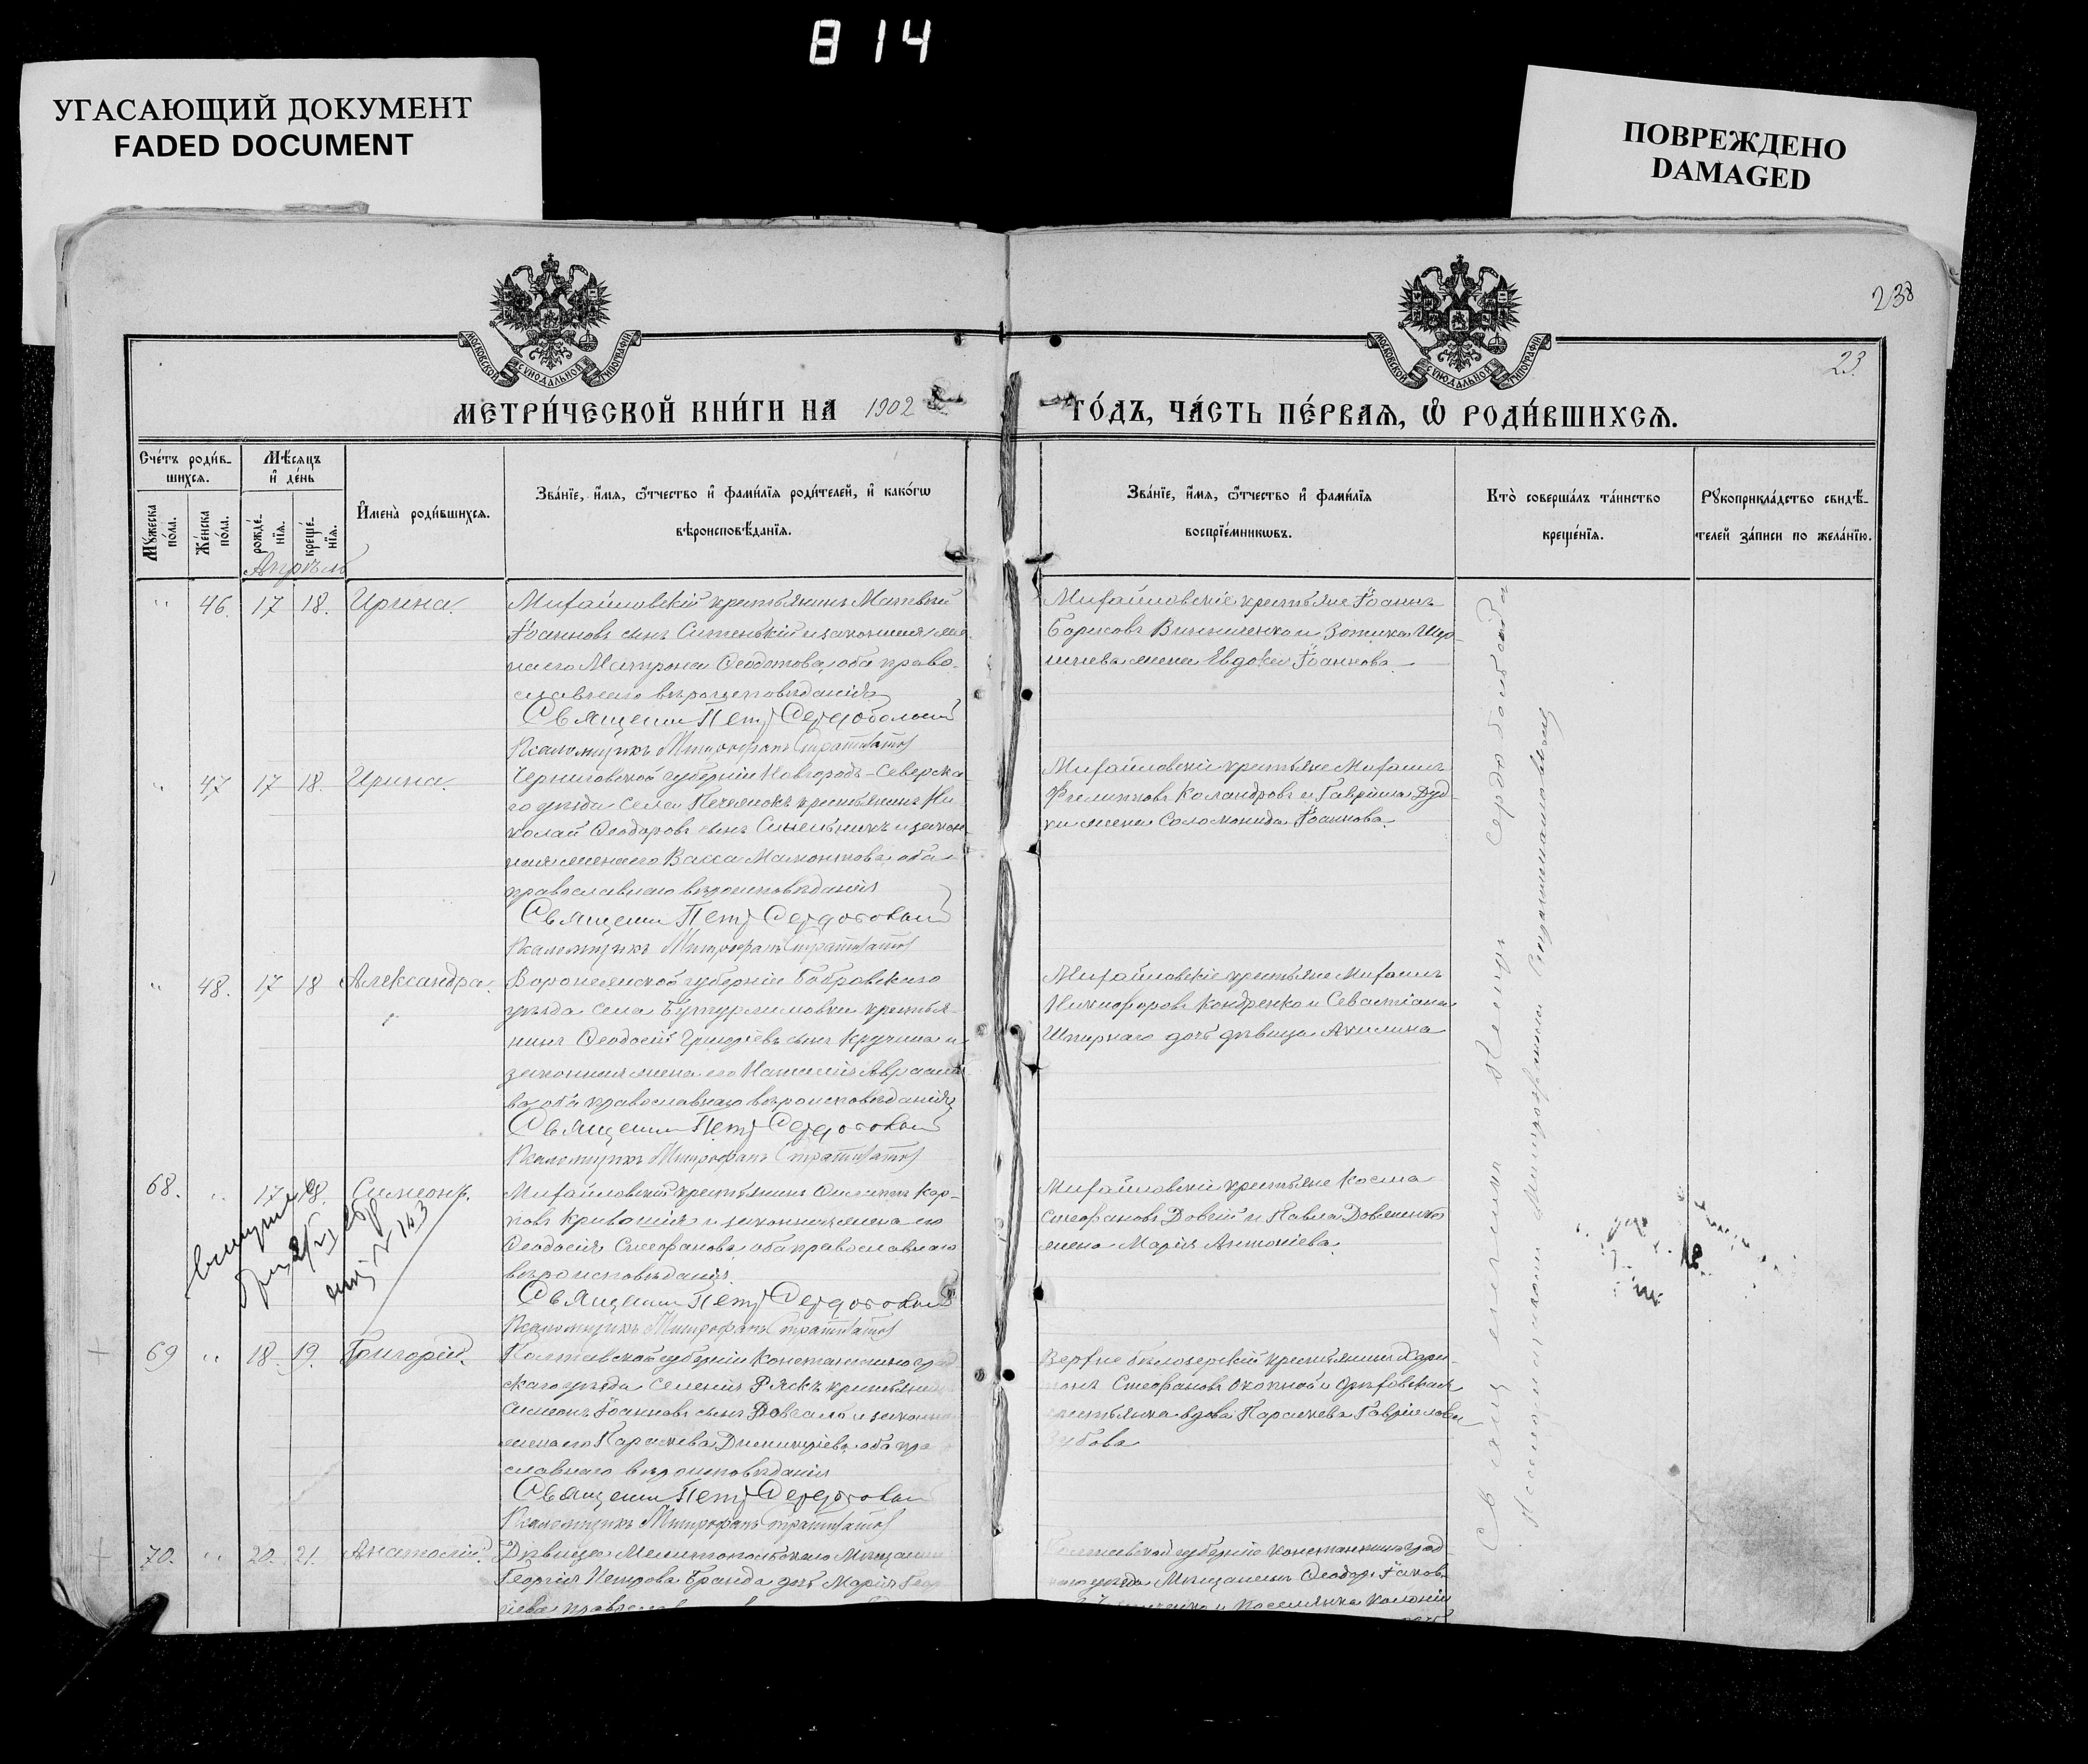 814
УГАСАЮЩИЙ ДОКУМЕНТ
FADED DOCUMENT
ПОВРЕЖДЕНО
DAMAGED
238
23.
МОСКОВСКОЙ СѴНОДАЛЬНОЙ ТИПОГРАФІИ
МОСКОВСКОЙ СѴНОДАЛЬНОЙ ТИПОГРАФІИ
МЕТРИ́ЧЕСКОЙ КНИ́ГИ НА 1902
ГО́ДЪ, ЧА́СТЬ ПЕ́РВАѦ, Ѽ РОДИ́ВШИХСѦ.
Сче́тъ роди́в-
шихсѧ.
Мꙋ́жеска по́ла.
Же́нска по́ла.
Мѣ́сѧцъ
и҆ де́нь
рожде́-
нїѧ.
креще́-
нїѧ.
И҆мена̀ роди́вшихсѧ.
Зва́нїе, и҆́мѧ, ѻ҆́тчество и҆ фами́лїѧ роди́телей, и҆ како́гѡ
вѣроисповѣ́данїѧ.
Зва́нїе, и҆́мѧ, ѻ҆́тчество и҆ фами́лїѧ
воспрїе́мникѡвъ.
Кто̀ соверша́лъ та́инство
креще́нїѧ.
Рꙋкоприкла́дство свидѣ́-
телей за́писи по жела́нїю.
Апрѣль
" 46. 17 18. Ирина.
Михайловскій крестьянинъ Матвѣй
Іоанновъ сынъ Ситенькій и законная же-
на его Матрона Ѳеодотова, оба право-
славнаго вѣроисповѣданія
Священ Петр Сердобольскій
Псаломщикъ Митрофанъ Стратилатов
Михайловскіе крестьяне Іоаннъ
Борисовъ Винниченко и Зотика
жена Евдокія Іоаннова
" 47 17 18. Ирина.
Черниговской губерніи Новгородъ-Северска
го уѣзда села Печенюкъ крестьянинъ Ни
колай Ѳеодоровъ сынъ Синельникъ и закон-
ная жена его Васса Мамонтова, оба
православнаго вѣроисповѣданія
Священ Петр Сердобольскій
Псаломщикъ Митрофанъ Стратилатов
Михайловскіе крестьяне Михаилъ
Филипповъ Коландровъ и Гавріила Дуд-
ки жена Соломонида Іоаннова.
" 48. 17 18 Александра.
Воронежской губерніи Бобровскаго
уѣзда села Бутурлиновки крестья-
нинъ Ѳеодосій Григоріевъ сынъ Кручина и
законная жена его Наталія Авраамо-
ва, оба православнаго вѣроисповѣданія
Священ Петр Сердобольскій
Псаломщикъ Митрофанъ Стратилатов
Михайловскіе крестьяне Михаилъ
Никифоровъ Кондренко и Севастіана
Шпирнаго дочь дѣвица Акилина
68. " 17 18. Симеонъ.
Михайловскій крестьянинъ Филиппъ Кар-
повъ Кривошія и законная жена его
Ѳеодосія Стефанова, оба православнаго
вѣроисповѣданія.
Священ Петр Сердобольскій
Псаломщикъ Митрофанъ Стратилатов
Михайловскіе крестьяне Косма
Стефановъ Довгій и Павла Довженко
жена Марія Антоніева.
143
69 " 18. 19. Григорій.
Полтавской губерніи Константиноград
скаго уѣзда селенія Ряскъ крестьянинъ
Симеонъ Іоанновъ сынъ Довгаль и законна
жена его Параскева Димитріева, оба пра
славнаго вѣроисповѣданія
Священ Петр Сердобольскій
Псаломщикъ Митрофанъ Стратилатов
Верхне бѣлозерскій крестьянинъ Хари-
тонъ Стефановъ Окопной и Орѣховская
крестьянка вдова Параскева Гавріилова
Зубова
70. " 20. 21. Анатолій.
Дѣвица Мелитопольскаго Мѣщанина
Георгія Петрова Бранда дочь Марія Геор
гіева
Полтавской губерніи Константиноград
уѣзда Мѣщанинъ Ѳеодоръ Іаков-
и поселянка колоніи
Священникъ Петръ Сердобольскій
Псаломщикомъ Митрофаномъ Стратилатовымъ